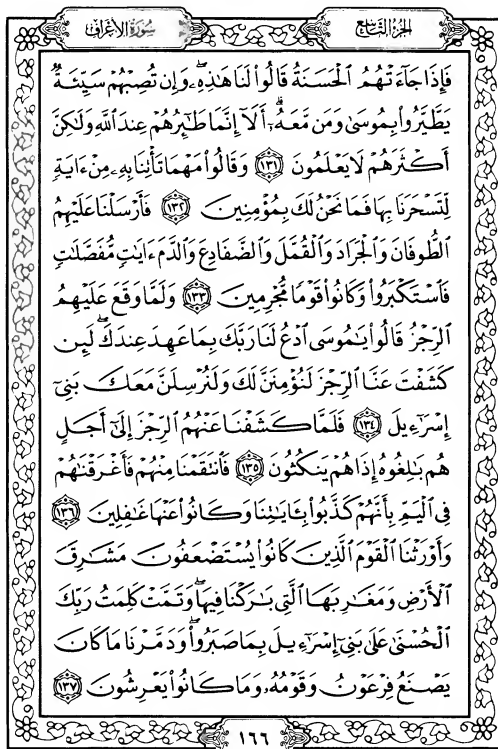 الجزء التاسع
سورة الأعراف
فَإِذَا جَآءَتْهُمُ ٱلْحَسَنَةُ قَالُوا۟ لَنَا هَـٰذِهِۦ وَإِن تُصِبْهُمْ سَيِّئَةٌ
يَطَّيَّرُوا۟ بِمُوسَىٰ وَمَن مَّعَهُۥٓ ۗ أَلَآ إِنَّمَا طَـٰٓئِرُهُمْ عِندَ ٱللَّهِ وَلَـٰكِنَّ
أَكْثَرَهُمْ لَا يَعْلَمُونَ ١٣١ وَقَالُوا۟ مَهْمَا تَأْتِنَا بِهِۦ مِنْ ءَايَةٍ
لِّتَسْحَرَنَا بِهَا فَمَا نَحْنُ لَكَ بِمُؤْمِنِينَ ١٣٢ فَأَرْسَلْنَا عَلَيْهِمُ
ٱلطُّوفَانَ وَٱلْجَرَادَ وَٱلْقُمَّلَ وَٱلضَّفَادِعَ وَٱلدَّمَ ءَايَـٰتٍ مُّفَصَّلَـٰتٍ
فَٱسْتَكْبَرُوا۟ وَكَانُوا۟ قَوْمًا مُّجْرِمِينَ ١٣٣ وَلَمَّا وَقَعَ عَلَيْهِمُ
ٱلرِّجْزُ قَالُوا۟ يَـٰمُوسَى ٱدْعُ لَنَا رَبَّكَ بِمَا عَهِدَ عِندَكَ ۖ لَئِن
كَشَفْتَ عَنَّا ٱلرِّجْزَ لَنُؤْمِنَنَّ لَكَ وَلَنُرْسِلَنَّ مَعَكَ بَنِىٓ
إِسْرَٰٓءِيلَ ١٣٤ فَلَمَّا كَشَفْنَا عَنْهُمُ ٱلرِّجْزَ إِلَىٰٓ أَجَلٍ
هُم بَـٰلِغُوهُ إِذَا هُمْ يَنكُثُونَ ١٣٥ فَٱنتَقَمْنَا مِنْهُمْ فَأَغْرَقْنَـٰهُمْ
فِى ٱلْيَمِّ بِأَنَّهُمْ كَذَّبُوا۟ بِـَٔايَـٰتِنَا وَكَانُوا۟ عَنْهَا غَـٰفِلِينَ ١٣٦
وَأَوْرَثْنَا ٱلْقَوْمَ ٱلَّذِينَ كَانُوا۟ يُسْتَضْعَفُونَ مَشَـٰرِقَ
ٱلْأَرْضِ وَمَغَـٰرِبَهَا ٱلَّتِى بَـٰرَكْنَا فِيهَا ۖ وَتَمَّتْ كَلِمَتُ رَبِّكَ
ٱلْحُسْنَىٰ عَلَىٰ بَنِىٓ إِسْرَٰٓءِيلَ بِمَا صَبَرُوا۟ ۖ وَدَمَّرْنَا مَا كَانَ
يَصْنَعُ فِرْعَوْنُ وَقَوْمُهُۥ وَمَا كَانُوا۟ يَعْرِشُونَ ١٣٧
١٦٦